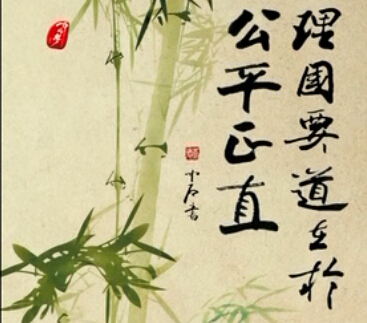 理国要道在於
公平正直